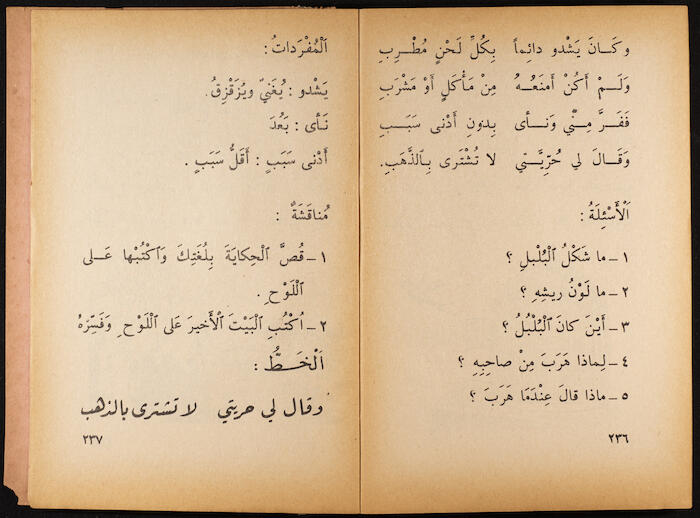 وَكَـانَ يَشْدو دائِماً بِكُلِّ لَحْنٍ مُطْـرِبِ
وَلَـمْ أَكُنْ أَمنَعُـهُ مِنْ مَأْكَلٍ أَوْ مَشْرَبِ
فَفَـرَّ مِنِّـي وَنَـأى بِدونِ أَدْنى سَبَـبِ
وَقَـالَ لي حُرِّيَّـتي لا تُشْتَرى بِـالذَّهَبِ.
اَلْأَسْئِلَةُ :
١ ـ ما شَكْلُ الْبُلْبُلِ ؟
٢ ـ ما لَوْنُ ريشِهِ ؟
٣ ـ أَيْنَ كانَ الْبُلْبُلُ ؟
٤ ـ لِماذا هَرَبَ مِنْ صاحِبِهِ ؟
٥ ـ ماذا قالَ عِنْدَمَا هَرَبَ ؟
٢٣٦
اَلْمُفْرَداتُ :
يَشْدو : يُغَنّي ويُزَقْزِقُ.
نَـأى : بَعُدَ
أَدْنى سَبَبٍ : أَقَلُّ سَبَبٍ .
مُناقَشَةٌ :
١ ـ قُصَّ الْحِكايَةَ بِلُغَتِكَ وَاكْتُبْها عَـلى
اللَّوْحِ .
٢ ـ اُكْتُبِ الْبَيْتَ الْأَخيرَ عَلى اللَّوْحِ وَفَسِّرْهُ
اَلْخَـطُّ :
وقال لي حريتي لا تشترى بالذهب
٢٣٧